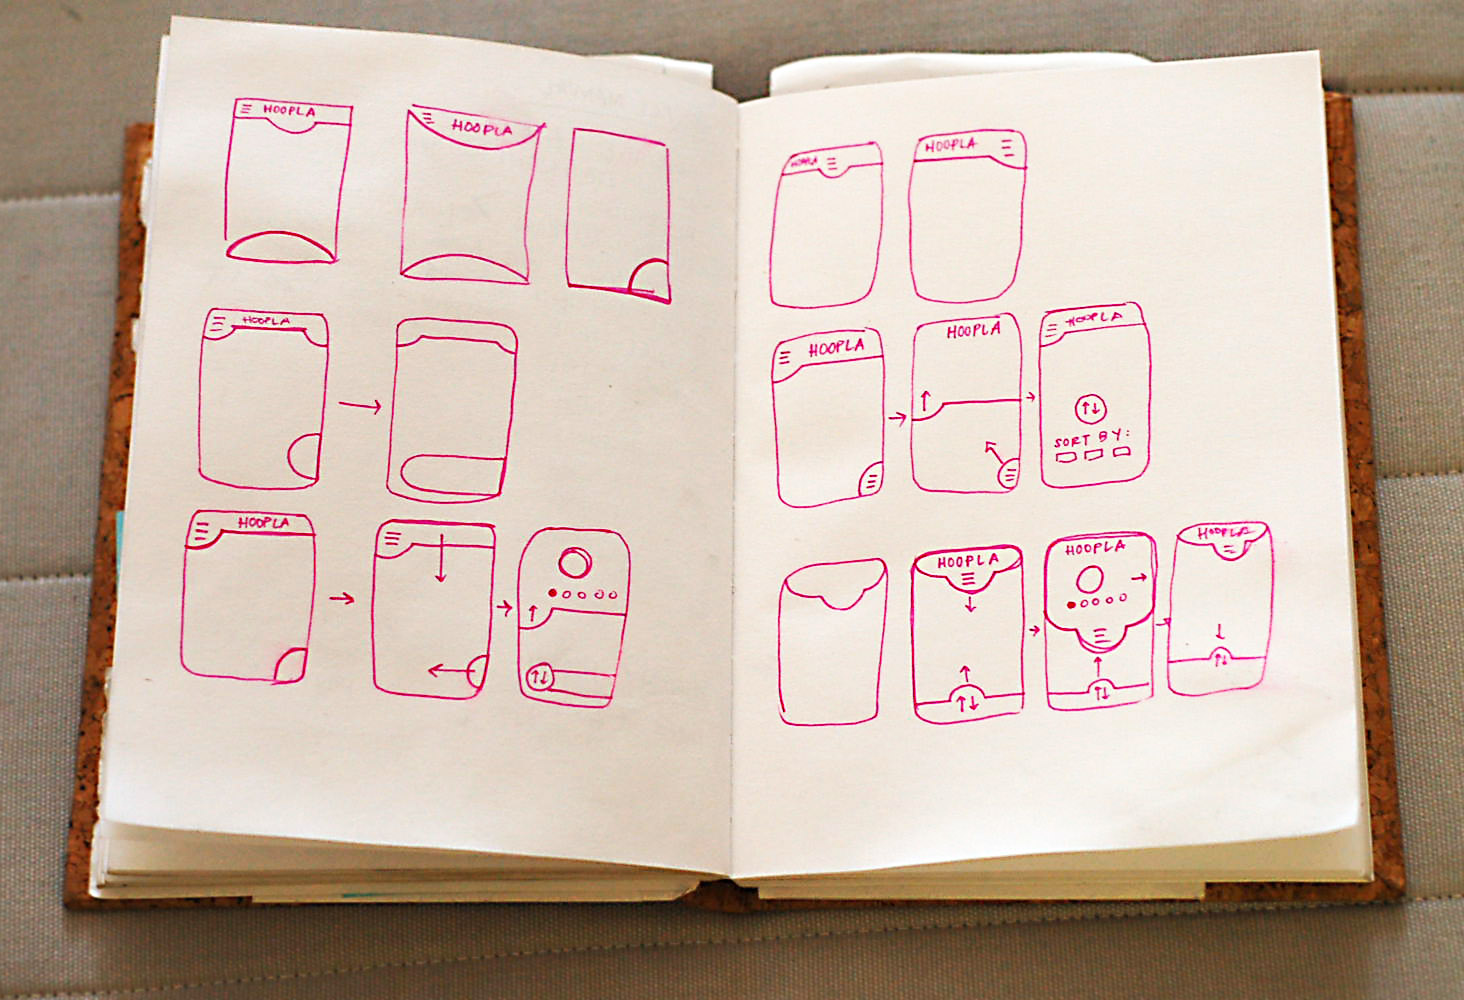 HOOPLA
HOOPLA
HOOPLA
HOOPLA
HOOPLA
HOOPLA
HOOPLA
HOOPLA
HOOPLA
SORT BY:
HOOPLA
HOOPLA
HOOPLA